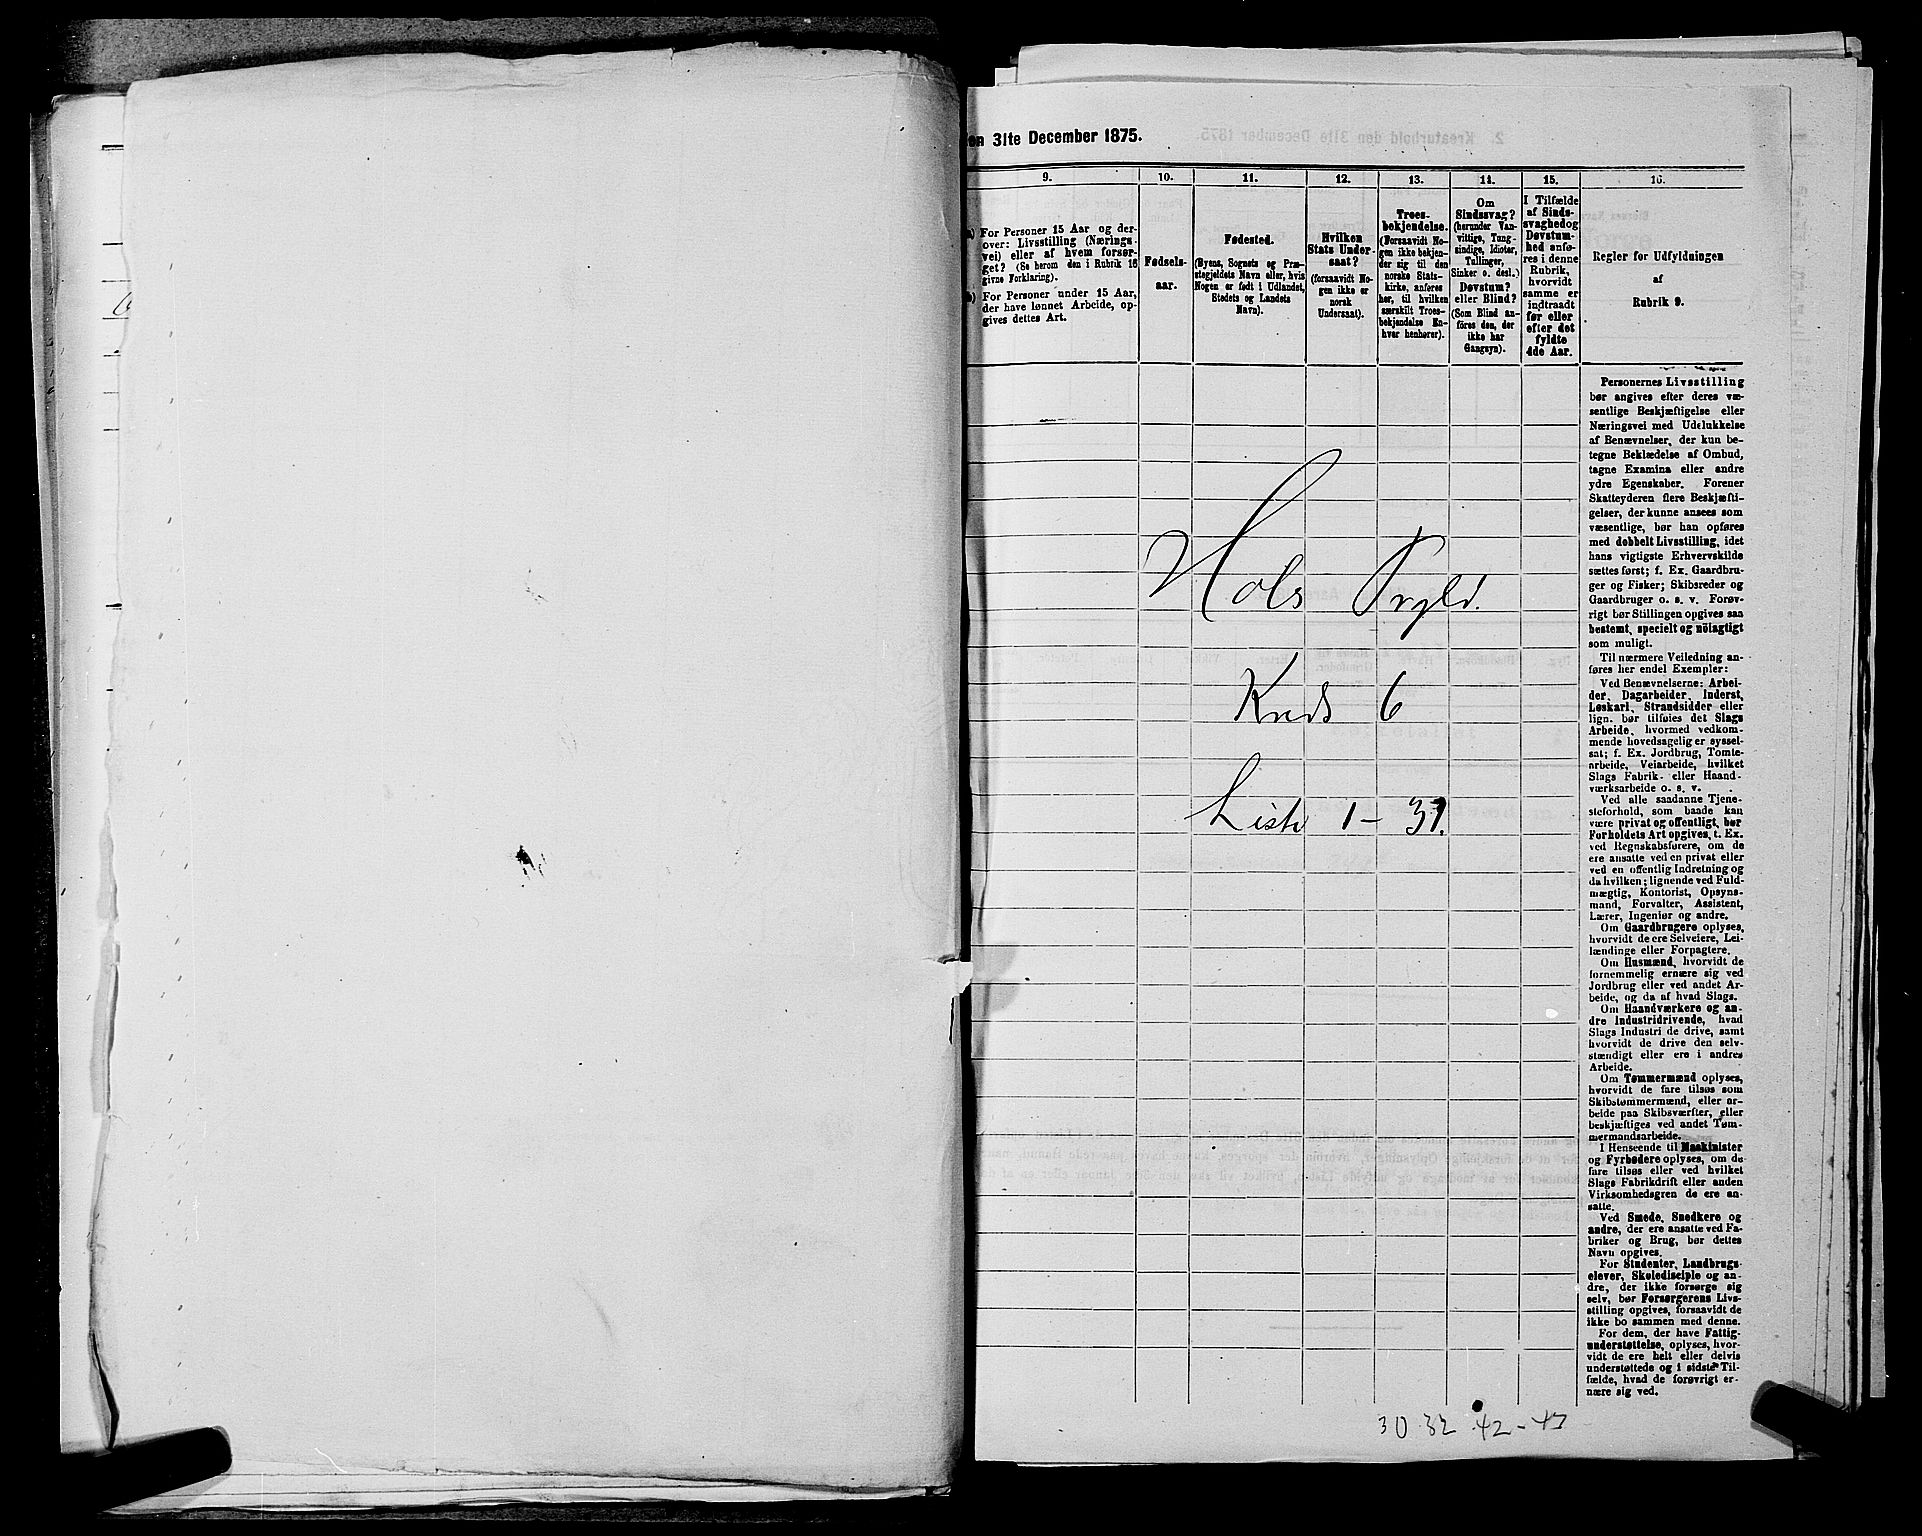 en 31te December 1875.
9.
a) For Personer 15 Aar og der-
over: Livsstilling (Nærings-
vei) eller af hvem forsør-
get? (Se herom den i Rubrik 16
givne Forklaring).
b) For Personer under 15 Aar,
der have lønnet Arbeide, op-
gives dettes Art.
10.
Fødsels-
aar.
11.
Fødested.
(Byens, Sognets og Præ-
stegjeldets Navn eller, hvis
Nogen er født i Udlandet,
Stedets og Landets
Navn).
12.
Hvilken
Stats Under-
saat?
(forsaavidt No-
gen ikke er
norsk
Undersaat).
13.
Troes-
bekjendelse.
(Forsaavidt No-
gen ikke bekjen-
der sig til den
norske Stats-
kirke, anføres
her, til hvilken
særskilt Troes-
bekjendelse En-
hver henhører).
14.
Om
Sindssvag?
(herunder Van-
vittige, Tung-
sindige, Idioter,
Tullinger,
Sinker o. desl.)
Døvstum?
eller Blind?
(Som Blind an-
føres den, der
ikke har
Gangsyn).
15.
I Tilfælde
af Sinds-
svaghed og
Døvstum-
hed anfø-
res i denne
Rubrik,
hvorvidt
samme er
indtraadt
før eller
efter det
fyldte
4de Aar.
16.
Regler for Udfyldningen
af
Rubrik 9.
Personernes Livsstilling
bør angives efter deres væ-
sentlige Beskjæftigelse eller
Næringsvei med Udelukkelse
af Benævnelser, der kun be-
tegne Beklædelse af Ombud,
tagne Examina eller andre
ydre Egenskaber. Forener
Skatteyderen flere Beskjæfti-
gelser, der kunne ansees som
væsentlige, bør han opføres
med dobbelt Livsstilling, idet
hans vigtigste Erhvervskilde
sættes først; f. Ex. Gaardbru-
ger og Fisker; Skibsreder og
Gaardbruger o. s. v. Forøv-
rigt bør Stillingen opgives saa
bestemt, specielt og nöiagtigt
som muligt.
Til nærmere Veiledning an-
føres her endel Exempler:
Ved Benævnelserne: Arbei-
der, Dagarbeider, Inderst,
Løskarl, Strandsidder eller
lign. bør tilføies det Slags
Arbeide, hvormed vedkom-
mende hovedsagelig er syssel-
sat; f. Ex. Jordbrug, Tomte-
arbeide, Veiarbeide, hvilket
Slags Fabrik- eller Haand-
værksarbeide o. s. v.
Ved alle saadanne Tjene-
steforhold, som baade kan
være privat og offentligt, bør
Forholdets Art opgives, t. Ex.
ved Regnskabsførere, om de
ere ansatte ved en privat eller
ved en offentlig Indretning og
da hvilken; lignende ved Fuld-
mægtig, Kontorist, Opsyns-
mand, Forvalter, Assistent,
Lærer, Ingeniør og andre.
Om Gaardbrugere oplyses,
hvorvidt de ere Selveiere, Lei-
lændinge eller Forpagtere.
Om Husmænd, hvorvidt de
fornemmelig ernære sig ved
Jordbrug eller ved andet Ar-
beide, og da af hvad Slags.
Om Haandværkere og an-
dre Industridrivende, hvad
Slags Industri de drive, samt
hvorvidt de drive den selv-
stændigt eller ere i andres
Arbeide.
Om Tømmermænd oplyses,
hvorvidt de fare tilsøs som
Skibstømmermænd, eller ar-
beide paa Skibsværfter, eller
beskjæftiges ved andet Tøm-
mermandsarbeide.
I Henseende til Maskinister
og Fyrbødere oplyses, om de
fare tilsøs eller ved hvilket
Slags Fabrikdrift eller anden
Virksomhedsgren de ere an-
satte.
Ved Smede, Snedkere og
andre, der ere ansatte ved Fa-
briker og Brug, bør dettes
Navn opgives.
For Studenter, Landbrugs-
elever, Skoledisciple og an-
dre, der ikke forsørge sig
selv, bør Forsørgerens Livs-
stilling opgives, forsaavidt de
ikke bo sammen med denne.
For dem, der have Fattig-
understøttelse, oplyses, hvor-
vidt de ere helt eller delvis
understøttede og i sidste Til-
fælde, hvad de forøvrigt er-
nære sig ved.
Hols Prgld.
Kreds 6
Liste 1 - 31.
30.32 42-43